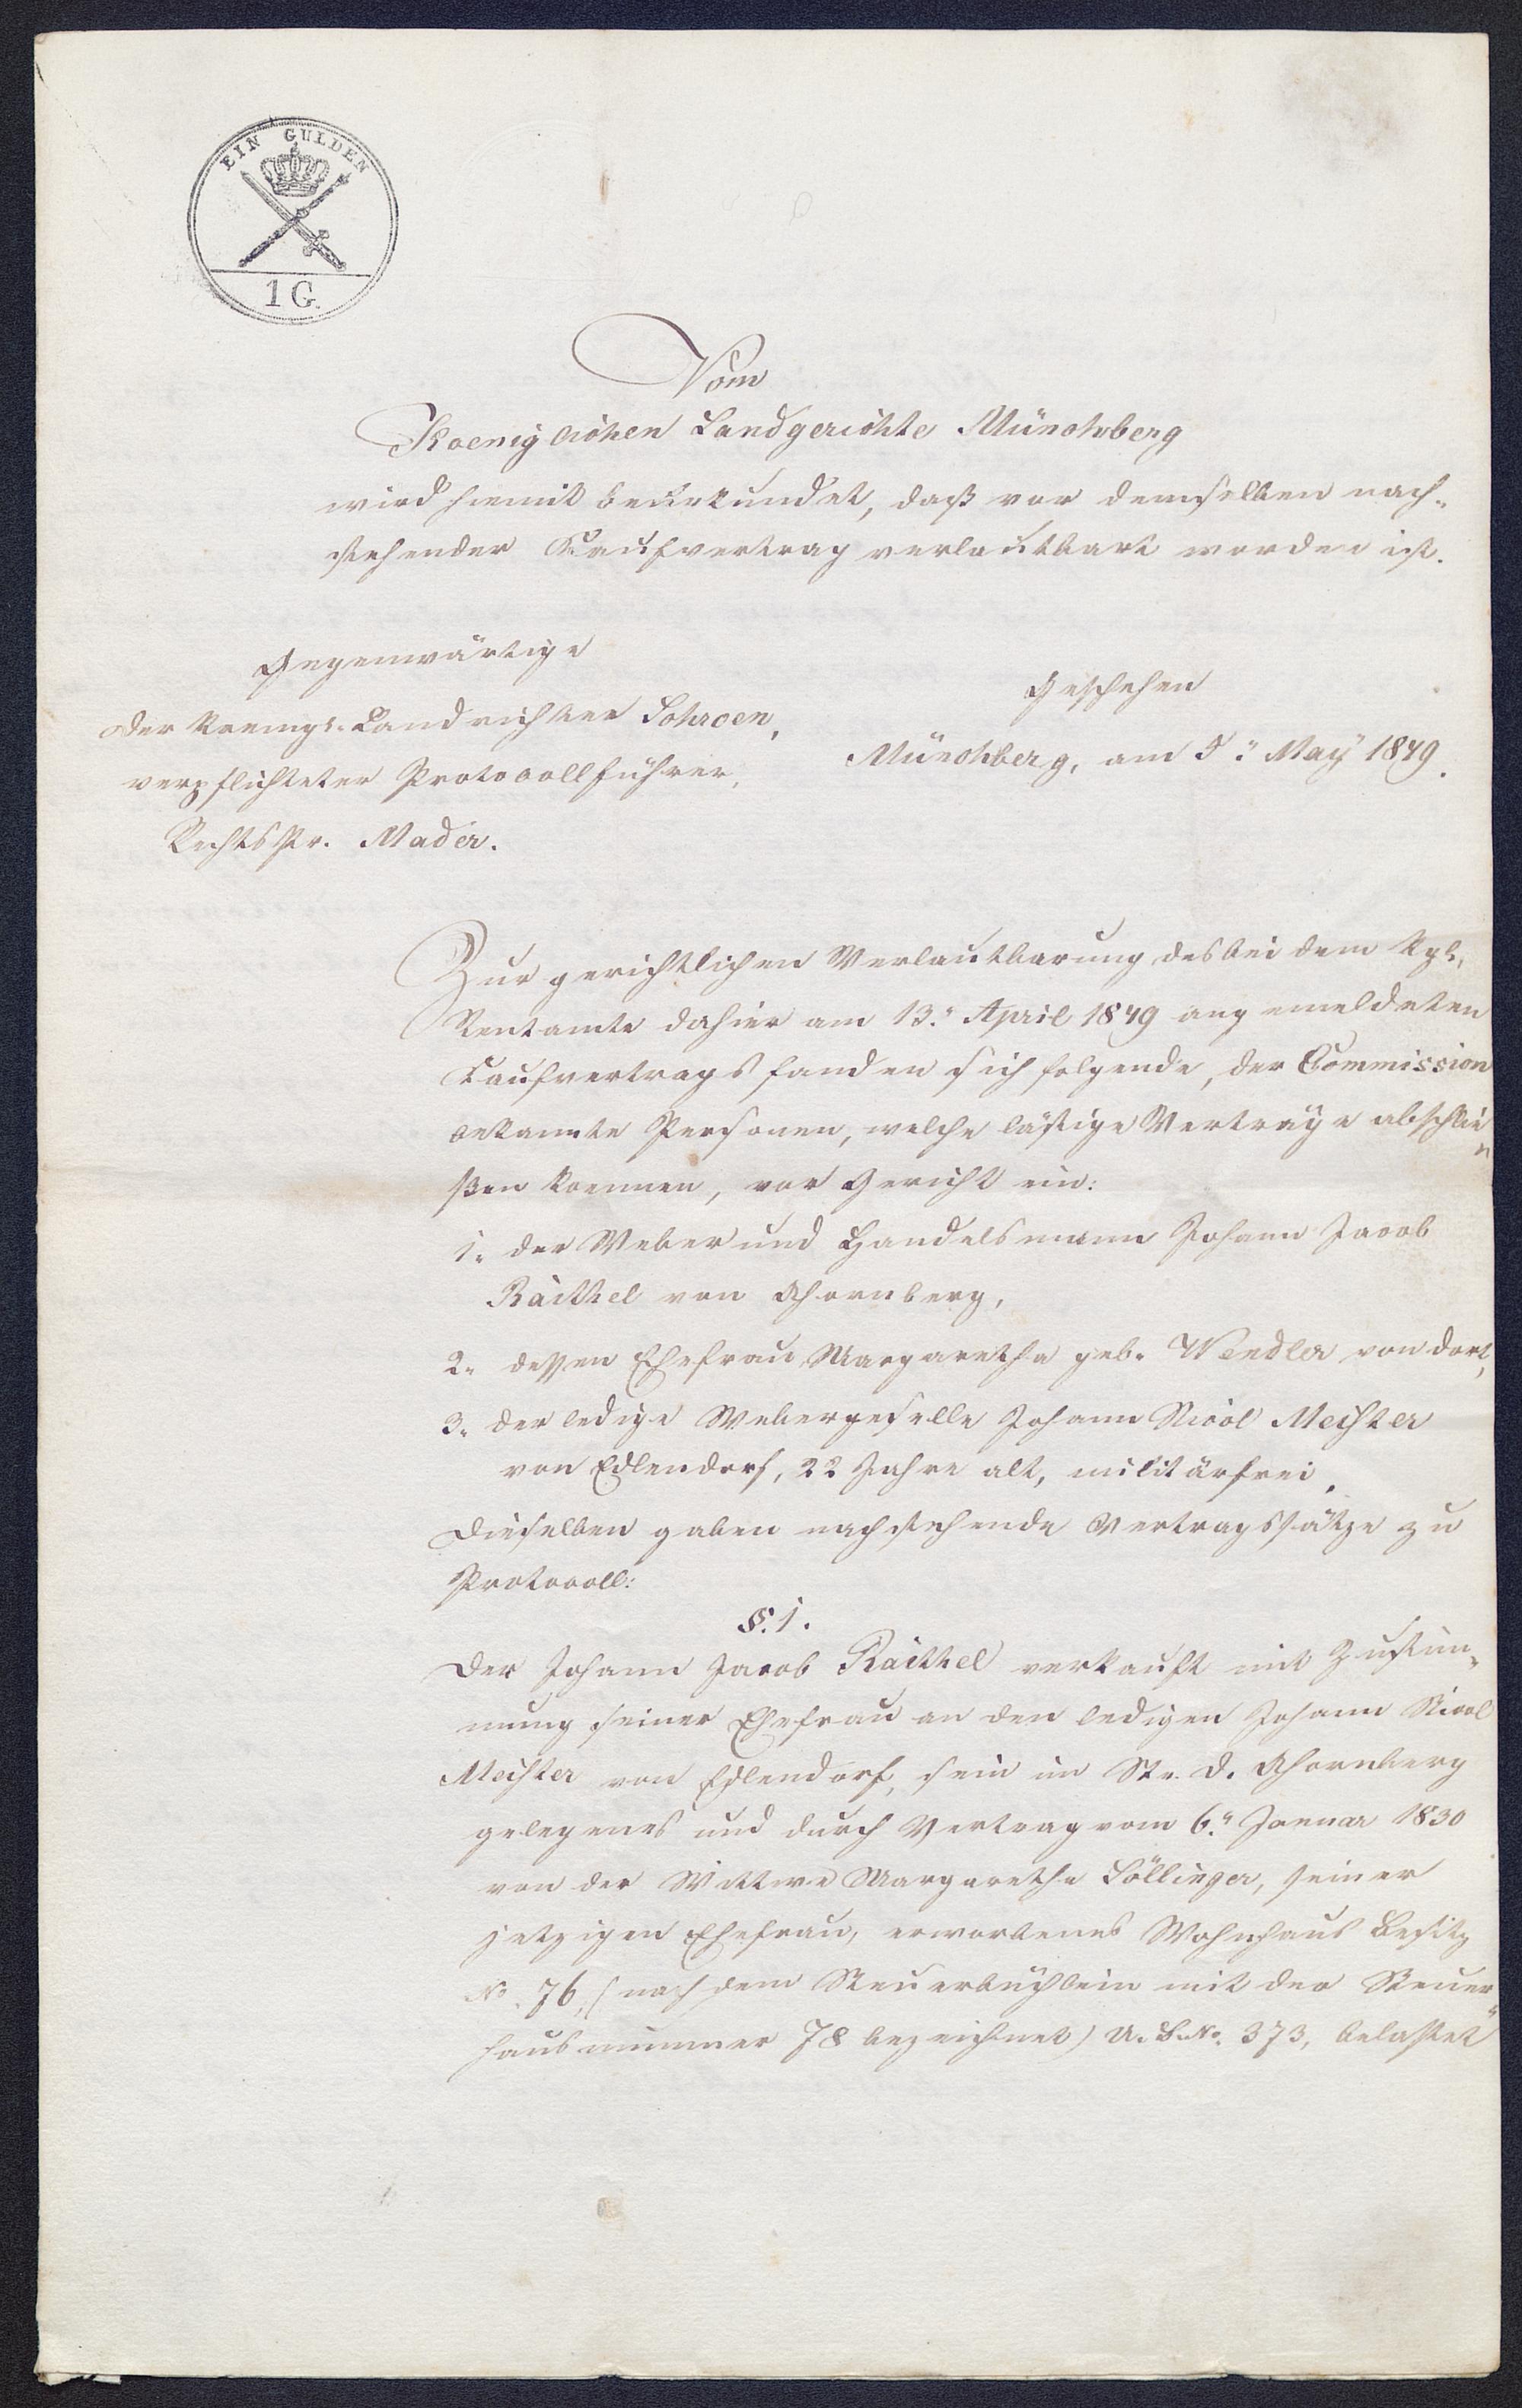 EIN GULDEN
1 G.
Vom
Koeniglichen Landgerichte Münchberg
wird hiemit beurkundet, daß vor demselben nach-
stehender Kaufvertrag verlautbart worden ist.
Gegenwärtige
der koenigl. Landrichter Schroen,
verpflichteter Protocollführer,
RechtsPr. Mader.
Geschehen
Münchberg, am 5." May 1849.
Zur gerichtlichen Verlautbarung des bei dem kgl.
Rentamte dahier am 13." April 1849 angemeldeten
Kaufvertrags fanden sich folgende, der Commission
bekannte Personen, welche lästige Verträge abschlie-
ßen koennen, vor Gericht ein:
1. der Weber und Handelsmann Johann Jacob
Räithel von Ahornberg,
2. dessen Ehefrau Margaretha geb. Wendler von dort,
3. der ledige Webergeselle Johann Nicol Meister
von Edlendorf, 22 Jahre alt, militärfrei.
Dieselben gaben nachstehende Vertragssätze zu
Protocoll:
§. 1.
Der Johann Jacob Räithel verkauft mit Zustim-
mung seiner Ehefrau an den ledigen Johann Nicol
Meister von Edlendorf, sein im St. D. Ahornberg
gelegenes und durch Vertrag vom 6." Januar 1830
von der Wittwe Margaretha Söllinger, seiner
jetzigen Ehefrau, erworbenes Wohnhaus Besitz
No. 76, (nach dem Steuerbüchlein mit der Steuer-
hausnummer 78 bezeichnet) U. B. No. 373, belastet